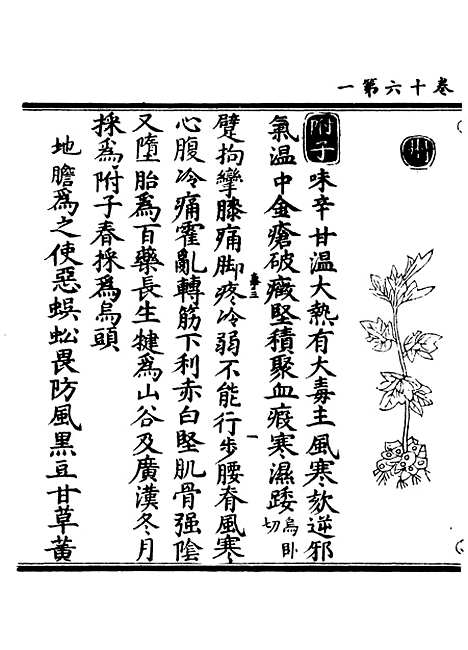 一第六十卷
州
附子 味辛甘溫大熱有大毒主風寒欬逆邪
氣溫中金瘡破癥堅積聚血瘕寒濕踒烏卧切
躄拘攣膝痛脚疼冷弱不能行步腰脊風寒
心腹冷痛霍亂轉筋下利赤白堅肌骨强陰
又墮胎爲百藥長生犍爲山谷及廣漢冬月
採爲附子春採爲烏頭
地膽爲之使惡蜈蚣畏防風黑豆甘草黃